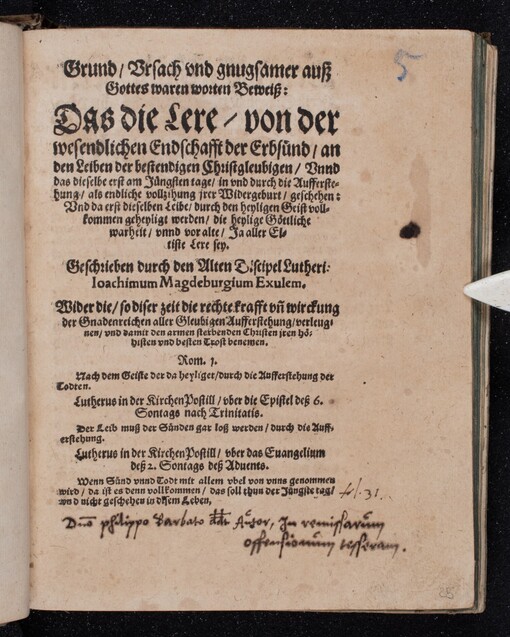 Grund / Vrsach vnd gnugsamer auß
Gottes waren worten Beweiß:
Das die Lere / von der
wesendlichen Endschafft der Erbsünd / an
den Leiben der bestendigen Christgleubigen / Vnnd
das dieselbe erst am Jüngsten tage / in vnd durch die Aufferste-
hung / als endliche vollzihung jrer Widergeburt / geschehen:
Vnd da erst dieselben Leibe / durch den heyligen Geist voll-
kommen geheyligt werden / die heylige Göttliche
warheit / vnnd vor alte / Ja aller El-
tiste Lere sey.
Geschrieben durch den Alten Discipel Lutheri:
Ioachimum Magdeburgium Exulem.
Wider die / so diser zeit die rechte krafft vñ wirckung
der Gnadenreichen aller Gleubigen Aufferstehung / verleug-
nen / vnd damit den armen sterbenden Christen jren hö-
histen vnd besten Trost benemen.
Rom. 1.
Nach dem Geiste der da heyliget / durch die Aufferstehung der
Todten.
Lutherus in der KirchenPostill / vber die Epistel deß 6.
Sontags nach Trinitatis.
Der Leib muß der Sünden gar loß werden / durch die Auff-
erstehung.
Lutherus in der KirchenPostill / vber das Euangelium
deß 2. Sontags deß Aduents.
Wenn Sünd vnnd Todt mit allem vbel von vnns genommen
wird / da ist es denn vollkommen / das soll thun der Jüngste tag /
vnd nicht geschehen in disem Leben.
philippo Barbato Autor, In remissarum
offensionum tesseram.
5
25